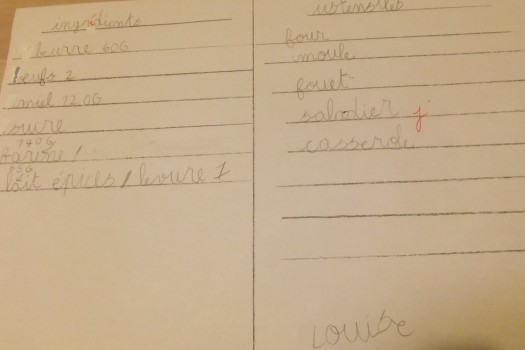 ingrédients
beurre 60G
oeufs 2
miel 220G
sucre
140G
farine /
85G
lait épices / levure 1
ustensiles
four
moule
fouet
saladier j
casserole
LOUISE